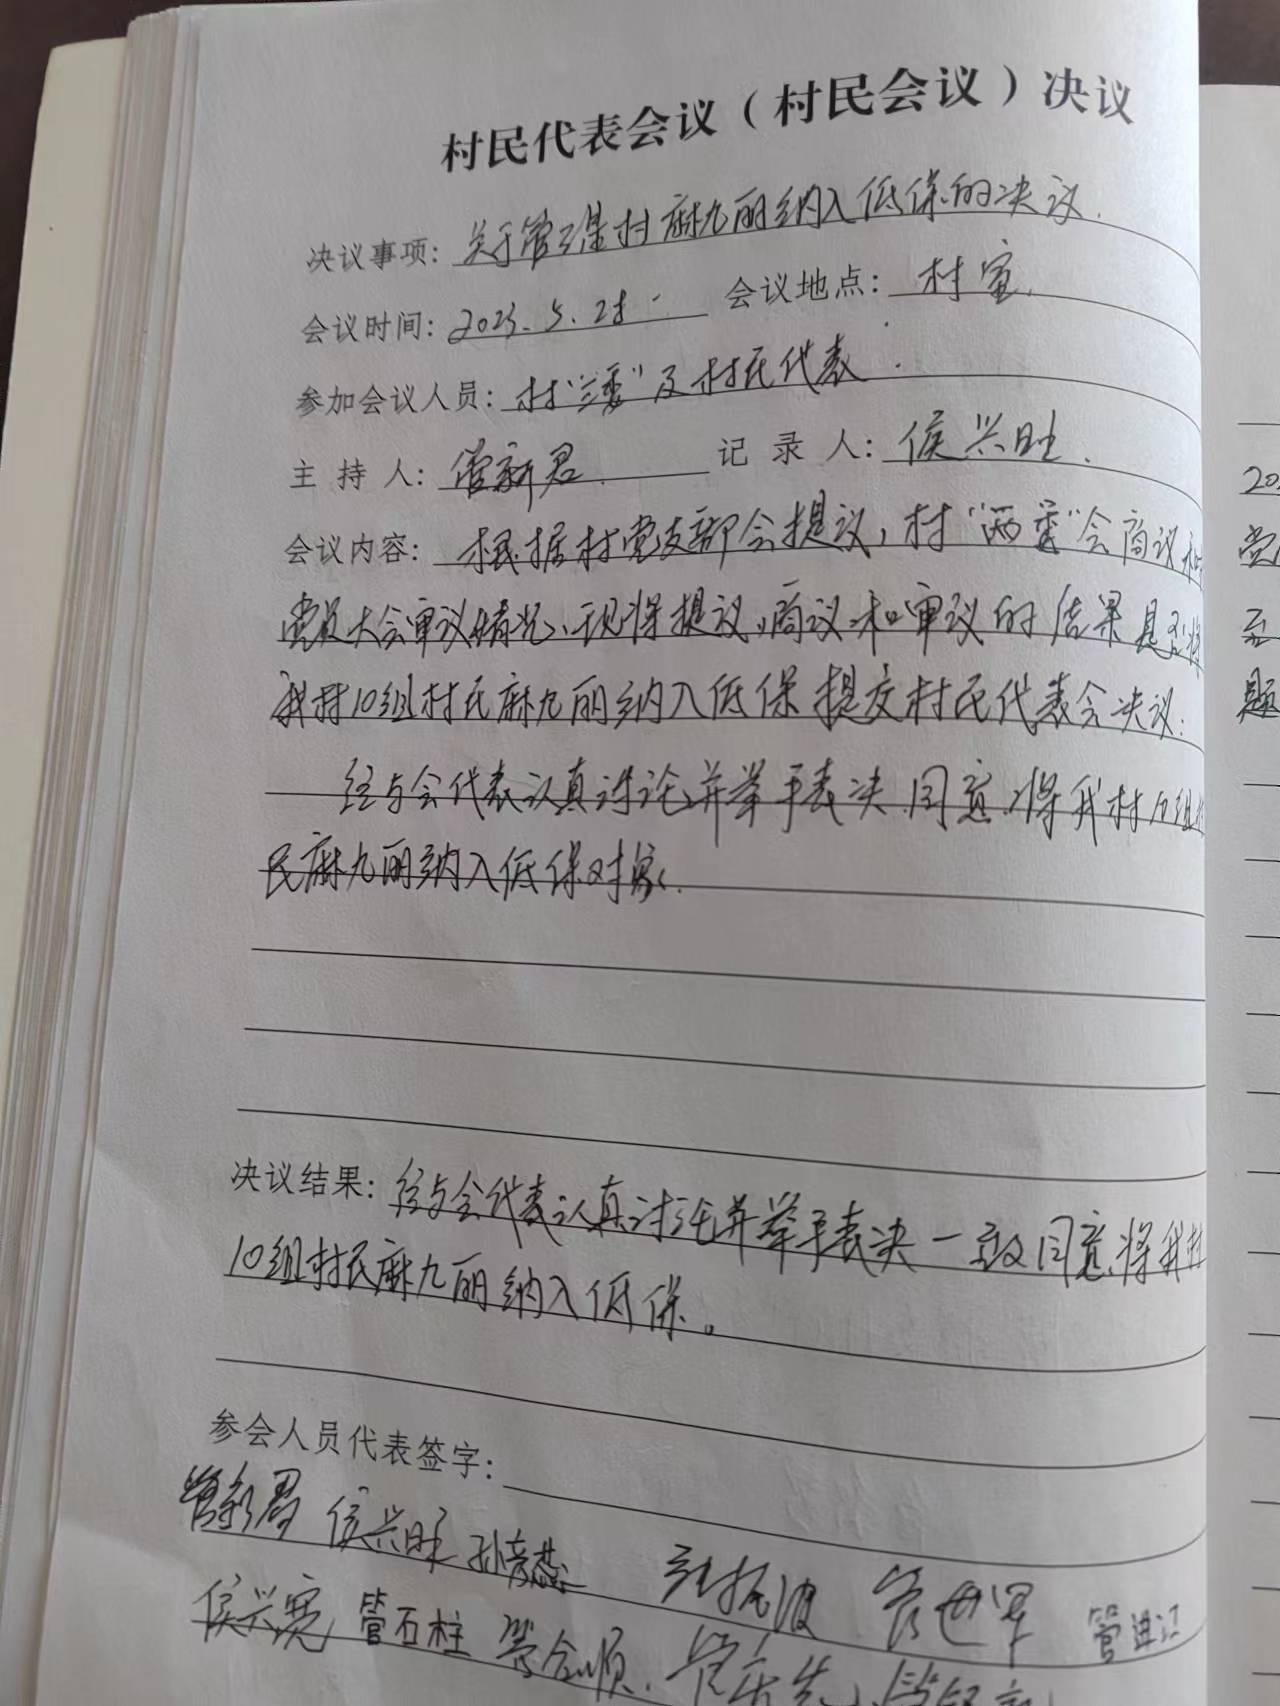 村民代表会议（村民会议）决议
决议事项：关于管理村麻九丽纳入低保的决议.
会议时间：2023.5.28 会议地点：村室.
参加会议人员：村"三委"及村民代表.
主持人：管新君. 记录人：侯兴旺.
会议内容：根据村党支部会提议，村"两委"会商议和
党员大会审议情况、现将提议、商议和审议的结果是否将
我村10组村民麻九丽纳入低保提交村民代表会决议：
经与会代表认真讨论并举手表决同意，将我村10组村
民麻九丽纳入低保对象.
决议结果：经与会代表认真讨论并举手表决一致同意，将我村
10组村民麻九丽纳入低保。
参会人员代表签字：
管新君 侯兴旺 孙彦燕 管世军 管进江
侯兴宽 管石柱 管合顺
20
党
题